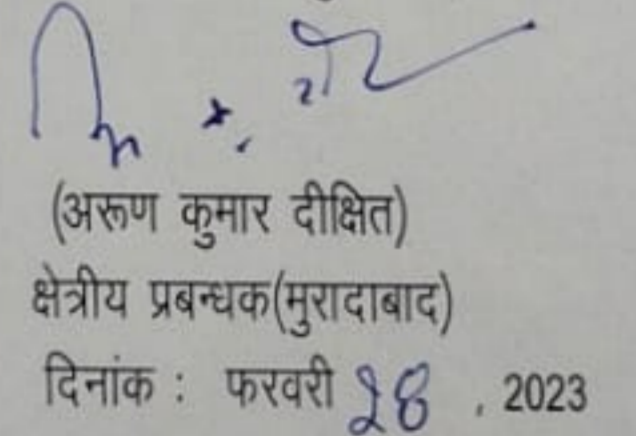 (अरूण कुमार दीक्षित)
क्षेत्रीय प्रबन्धक(मुरादाबाद)
दिनांक : फरवरी 28 , 2023